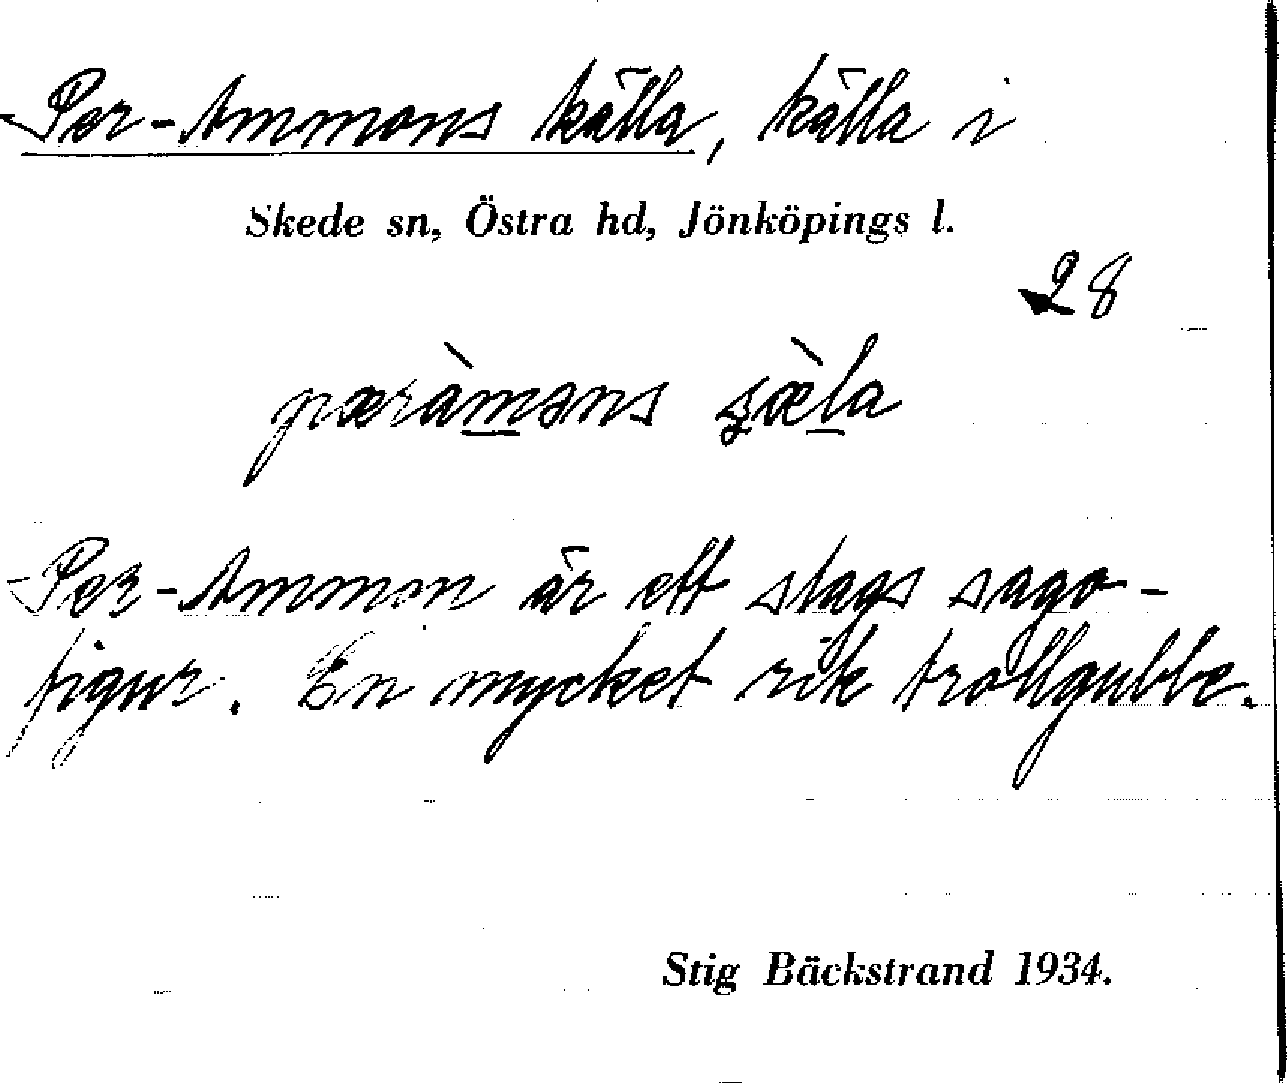 Per-Ammons källa, källa i
Skede sn, Östra hd, Jönköpings l.
28
Per-Ammon är ett slags sago-
figur. En mycket rik trollgubbe.
Stig Bäckstrand 1934.